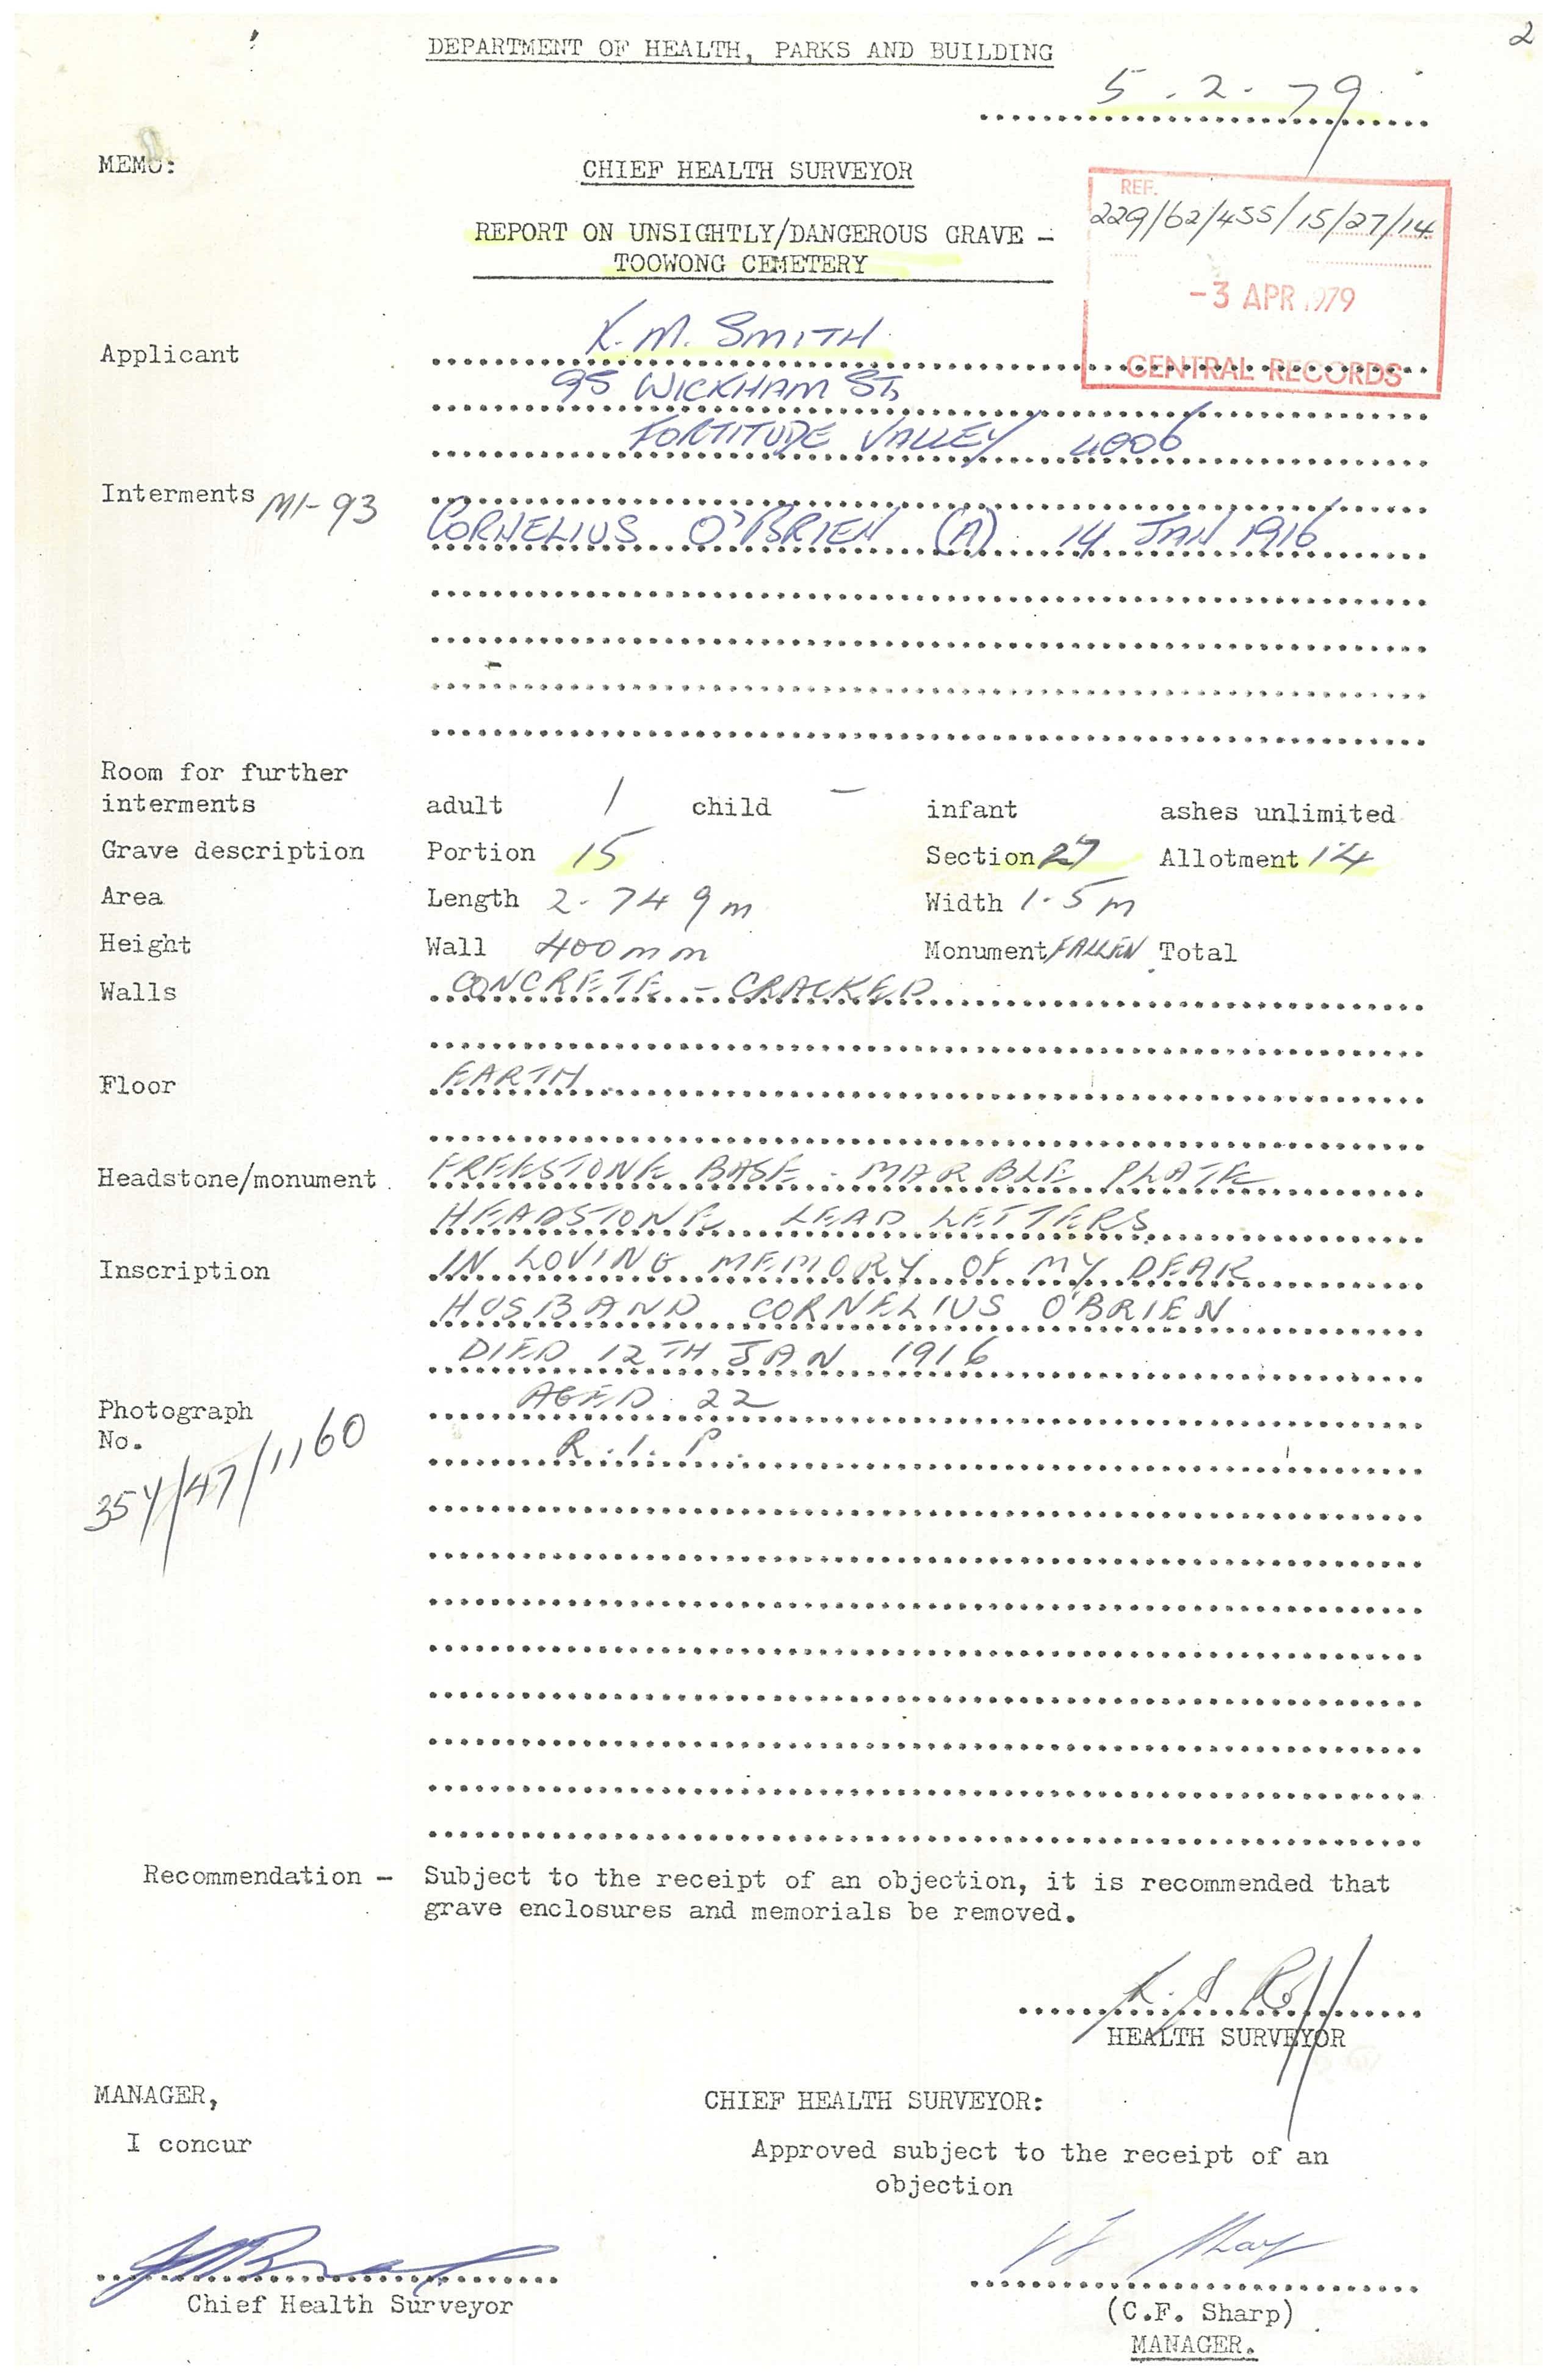 2
DEPARTMENT OF HEALTH, PARKS AND BUILDING
5.2.79
MEMO:
CHIEF HEALTH SURVEYOR
REF.
229/62/455/15/27/14
REPORT ON UNSIGHTLY/DANGEROUS GRAVE –
TOOWONG CEMETERY
-3 APR 1979
CENTRAL RECORDS
Applicant K.M. SMITH
95 WICKHAM ST,
FORTITUDE VALLEY 4006
Interments M1-93
CORNELIUS O'BRIEN (A) 14 JAN 1916
Room for further
interments adult 1 child – infant ashes unlimited
Grave description Portion 15 Section 27 Allotment 14
Area Length 2.749m Width 1.5m
Height Wall 400mm Monument FALLEN Total
Walls CONCRETE – CRACKED
Floor EARTH
Headstone/monument FREESTONE BASE - MARBLE PLATE
HEADSTONE LEAD LETTERS
Inscription IN LOVING MEMORY OF MY DEAR
HUSBAND CORNELIUS O'BRIEN
DIED 12TH JAN 1916
Photograph AGED 22
No. R.I.P.
354/47/1160
Recommendation – Subject to the receipt of an objection, it is recommended that
grave enclosures and memorials be removed.
HEALTH SURVEYOR
MANAGER, CHIEF HEALTH SURVEYOR:
I concur Approved subject to the receipt of an
objection
Chief Health Surveyor (C.F. Sharp)
MANAGER.